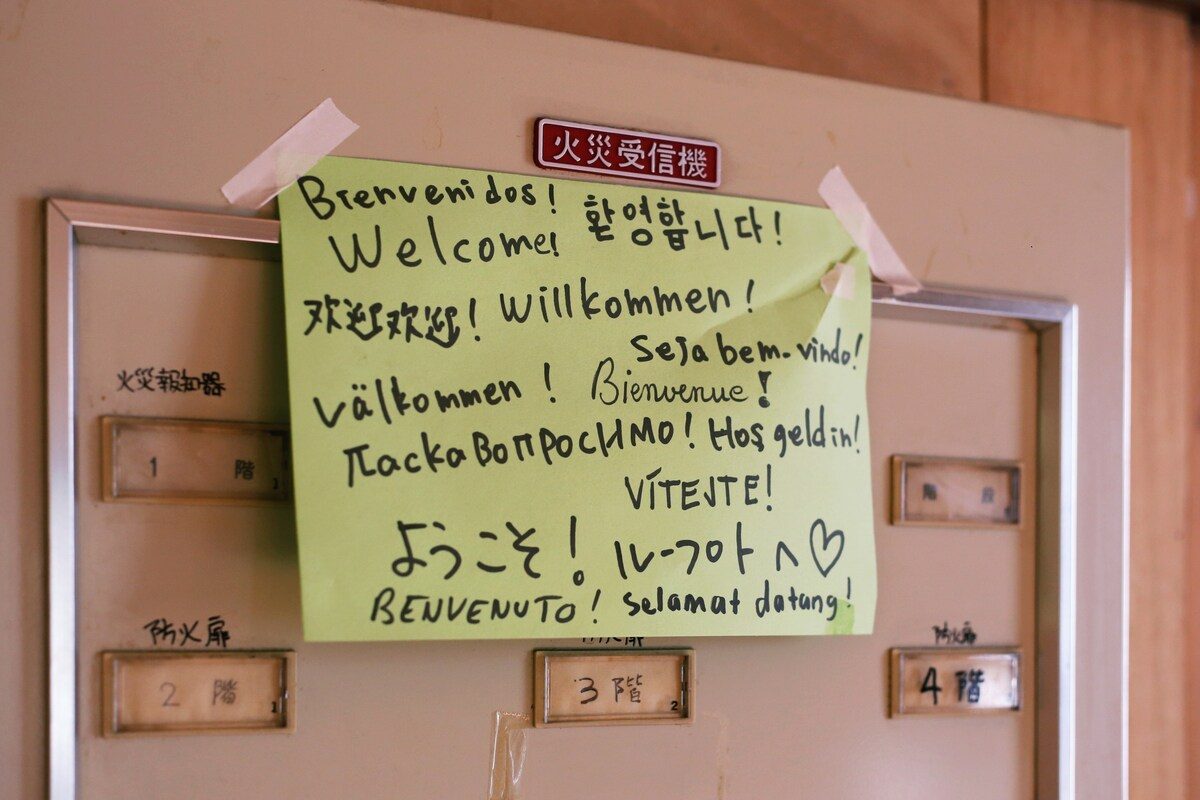 火災受信機
Bienvenidos!
환영합니다!
Welcome!
欢迎欢迎!
Willkommen!
Seja bem-vindo!
Välkommen!
Bienvenue!
ПаскаВопРосИМО!
Hoş geldin!
VÍTEJTE!
ようこそ!
ルーフロトへ♡
BENVENUTO!
selamat datang!
火災報知器
1 階 1
階 段
防火扉
防火扉
2 階 1
3 階 2
4 階